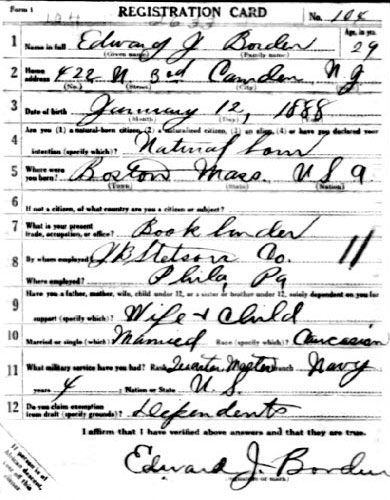 Form 1 REGISTRATION CARD No. 104
1 Name in full Edward J Borden Age, in yrs. 29
(Given name) (Family name)
2 Home address 422 N. 3rd Camden N J
(No.) (Street) (City)
3 Date of birth January 12, 1888
(Month) (Day) (Year)
4 Are you (1) a natural-born citizen, (2) a naturalized citizen, (3) an alien, (4) or have you declared your
intention (specify which)? Natural born
5 Where were you born? Boston Mass. U S A.
(Town) (State) (Nation)
6 If not a citizen, of what country are you a citizen or subject?
7 What is your present trade, occupation, or office? Book binder
8 By whom employed? J B Stetson Co. 11
Where employed? Phila, Pa
9 Have you a father, mother, wife, child under 12, or a sister or brother under 12, solely dependent on you for
support (specify which)? Wife + Child
10 Married or single (which)? Married Race (specify which)? Caucasian
11 What military service have you had? Rank Quarter Master branch Navy
years 4 ; Nation or State U. S.
12 Do you claim exemption from draft (specify grounds)? Dependents
I affirm that I have verified above answers and that they are true.
Edward J. Borden
If person is of
African descent,